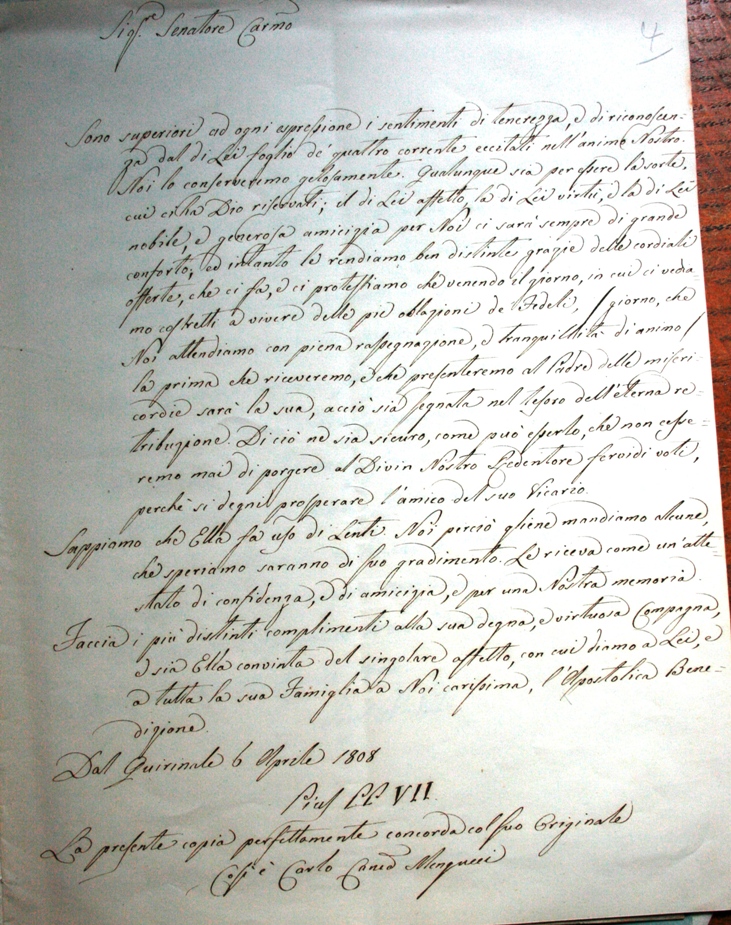 4
Sig.re Senatore Carmo
Sono superiori ad ogni espressione i sentimenti di tenerezza, e di riconoscen-
za dal di Lei foglio de' quattro corrente eccitati nell'animo Nostro.
Noi lo conserveremo gelosamente. Qualunque sia per essere la sorte,
cui ci ha Dio riservati; il di Lei affetto, la di Lei virtù, e la di Lei
nobile, e generosa amicizia per Noi ci sarà sempre di grande
conforto; ed intanto le rendiamo ben distinte grazie delle cordiali
offerte, che ci fa, e ci protestiamo che venendo il giorno, in cui ci vedra
mo costretti a vivere delle pie oblazioni de' Fedeli, / giorno, che
Noi attendiamo con piena rassegnazione, e tranquillità di animo /
la prima che riceveremo, e che presenteremo al Padre delle miseri-
cordie sarà la sua, acciò sia segnata nel tesoro dell'eterna re-
tribuzione. Di ciò ne sia sicuro, come può esserlo, che non cesse-
remo mai di porgere al Divin Nostro Redentore fervidi voti,
perchè si degni prosperare l'amico del suo Vicario.
Sappiamo che Ella fa uso di Lenti. Noi perciò gliene mandiamo alcune,
che speriamo saranno di suo gradimento. Le riceva come un'atte-
stato di confidenza, e di amicizia, e per una Nostra memoria.
Faccia i più distinti complimenti alla sua degna, e virtuosa Compagna,
e sia Ella convinta del singolare affetto, con cui diamo a Lei, e
a tutta la sua Famiglia a Noi carissima, l'Apostolica Bene-
dizione.
Dal Quirinale 6 Aprile 1808
Pius PP VII
La presente copia perfettamente concorda col suo Originale
Così è Carlo Can.co Mengucci